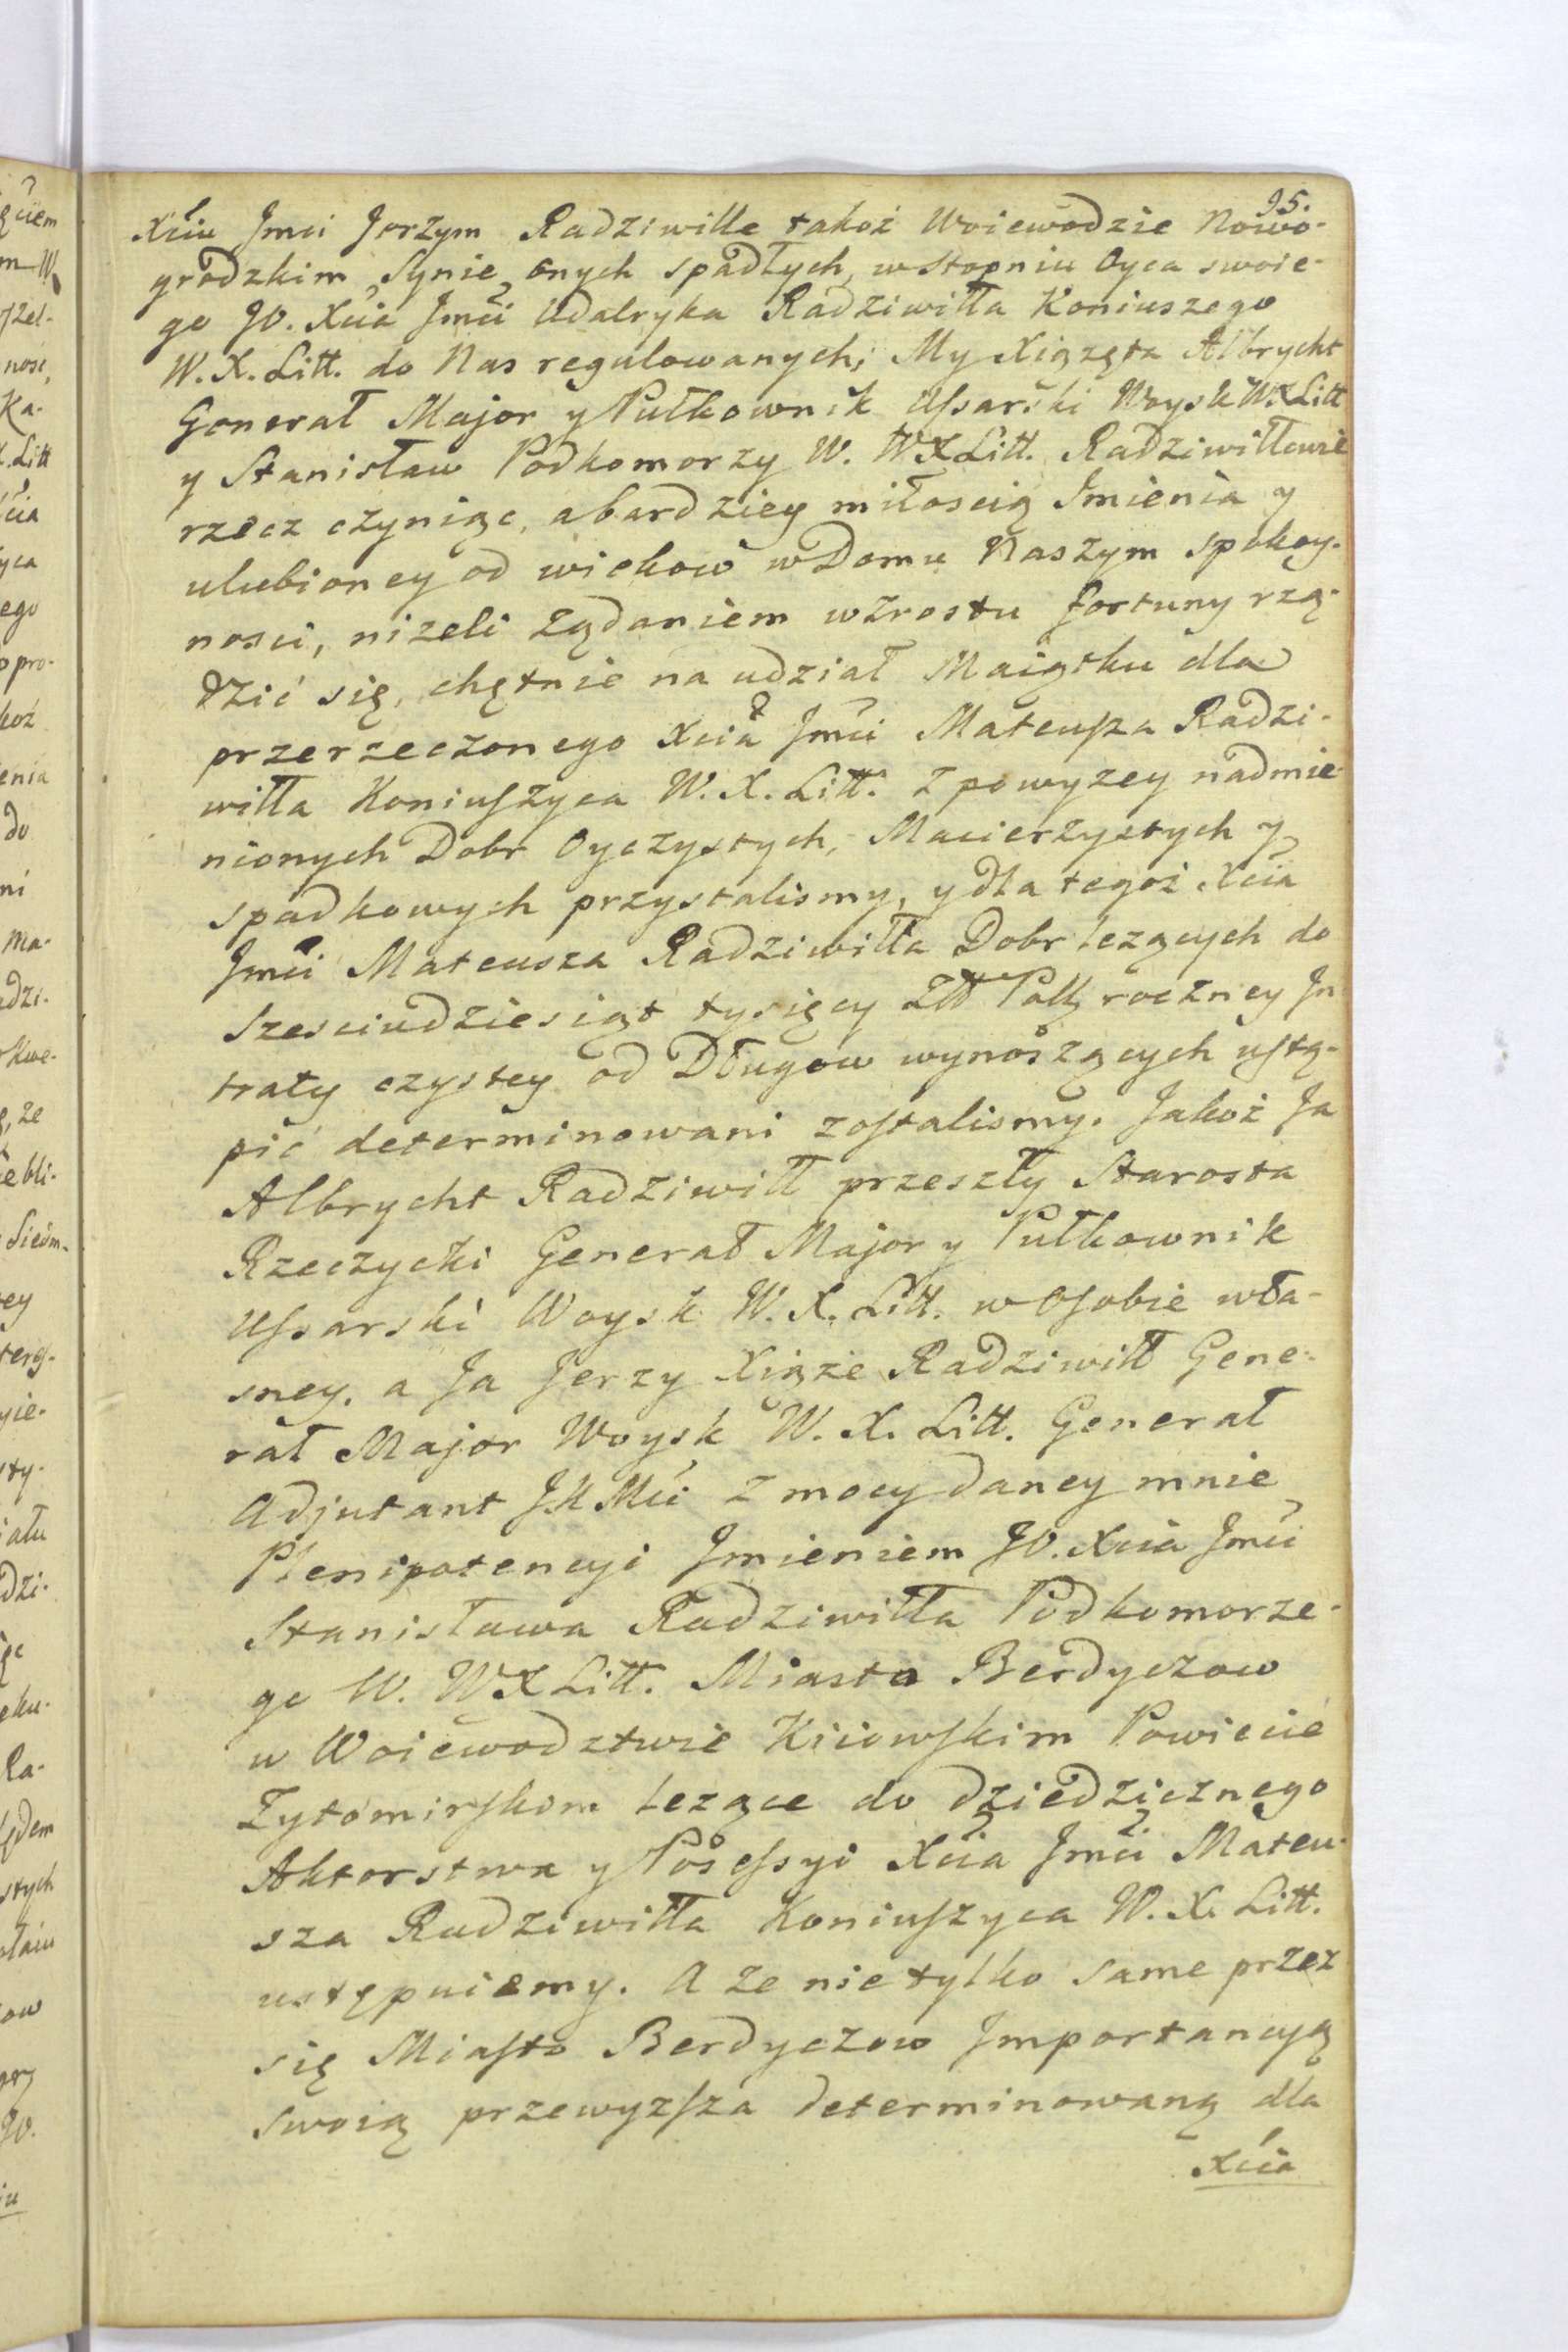 95.
Xćiu Jmći Jerzym Radziwille takoż Woiewodzie Nowo-
grodzkim, Synie onych spadłych, w Stopniu Oyca swoie-
go JO. Xcia Jmći Udalryka Radziwiłła Koniuszego
W. X. Litt. do Nas regulowanych; My Xiążęta Albrycht
Generał Major y Pułkownik Ussarski Woysk W.X Litt
y Stanisław Podkomorzy W. WX Litt. Radziwiłłowie
rzecz czyniąc, a bardziey miłoscią Jmienia y
ulubioney od wiekow w Domu Naszym spokoy-
nosci, niżeli żądaniem wzrostu fortuny rzą-
dzić się, chętnie na udział Maiątku dla
przerzeczonego Xcia Jmći Mateusza Radzi-
wiłła Koniuszyca W. X. Litt. z powyzey nadmie-
nionych Dobr Oyczystych, Macierzystych y
spadkowych przystalismy, y dla tegoż Xcia
Jmći Mateusza Radziwiłła Dobr lezących do
Szesciudziesiąt tysięcy Złt Polł roczney Jn
traty czystey od Długow wynoszących ustą-
pić determinowani zostalismy. Jakoż Ja
Albrycht Radziwiłł przeszły Starosta
Rzeczycki Generał Major y Pułkownik
Ussarski Woysk W. X. Litt. w Osobie wła-
sney, a Ja Jerzy Xiąże Radziwiłł Gene-
rał Major Woysk W. X. Litt. Generał
Adjutant JKMći z mocy daney mnie
Plenipotencyi Jmieniem JO. Xcia Jmći
Stanisława Radziwiłła Podkomorze-
go W. WX Litt. Miasto Berdyczow
w Woiewodztwie Kiiowskim Powiecie
Zytomirskom lezące do dziedzicznego
Aktorstwa y Possessyi Xcia Jmći Mateu-
sza Radziwiłła Koniuszyca W. X. Litt.
ustępuiemy. A że nietylko same przez
się Miasto Berdyczow Jmportancyą
swoią przewyzsza determinowaną dla
Xcia